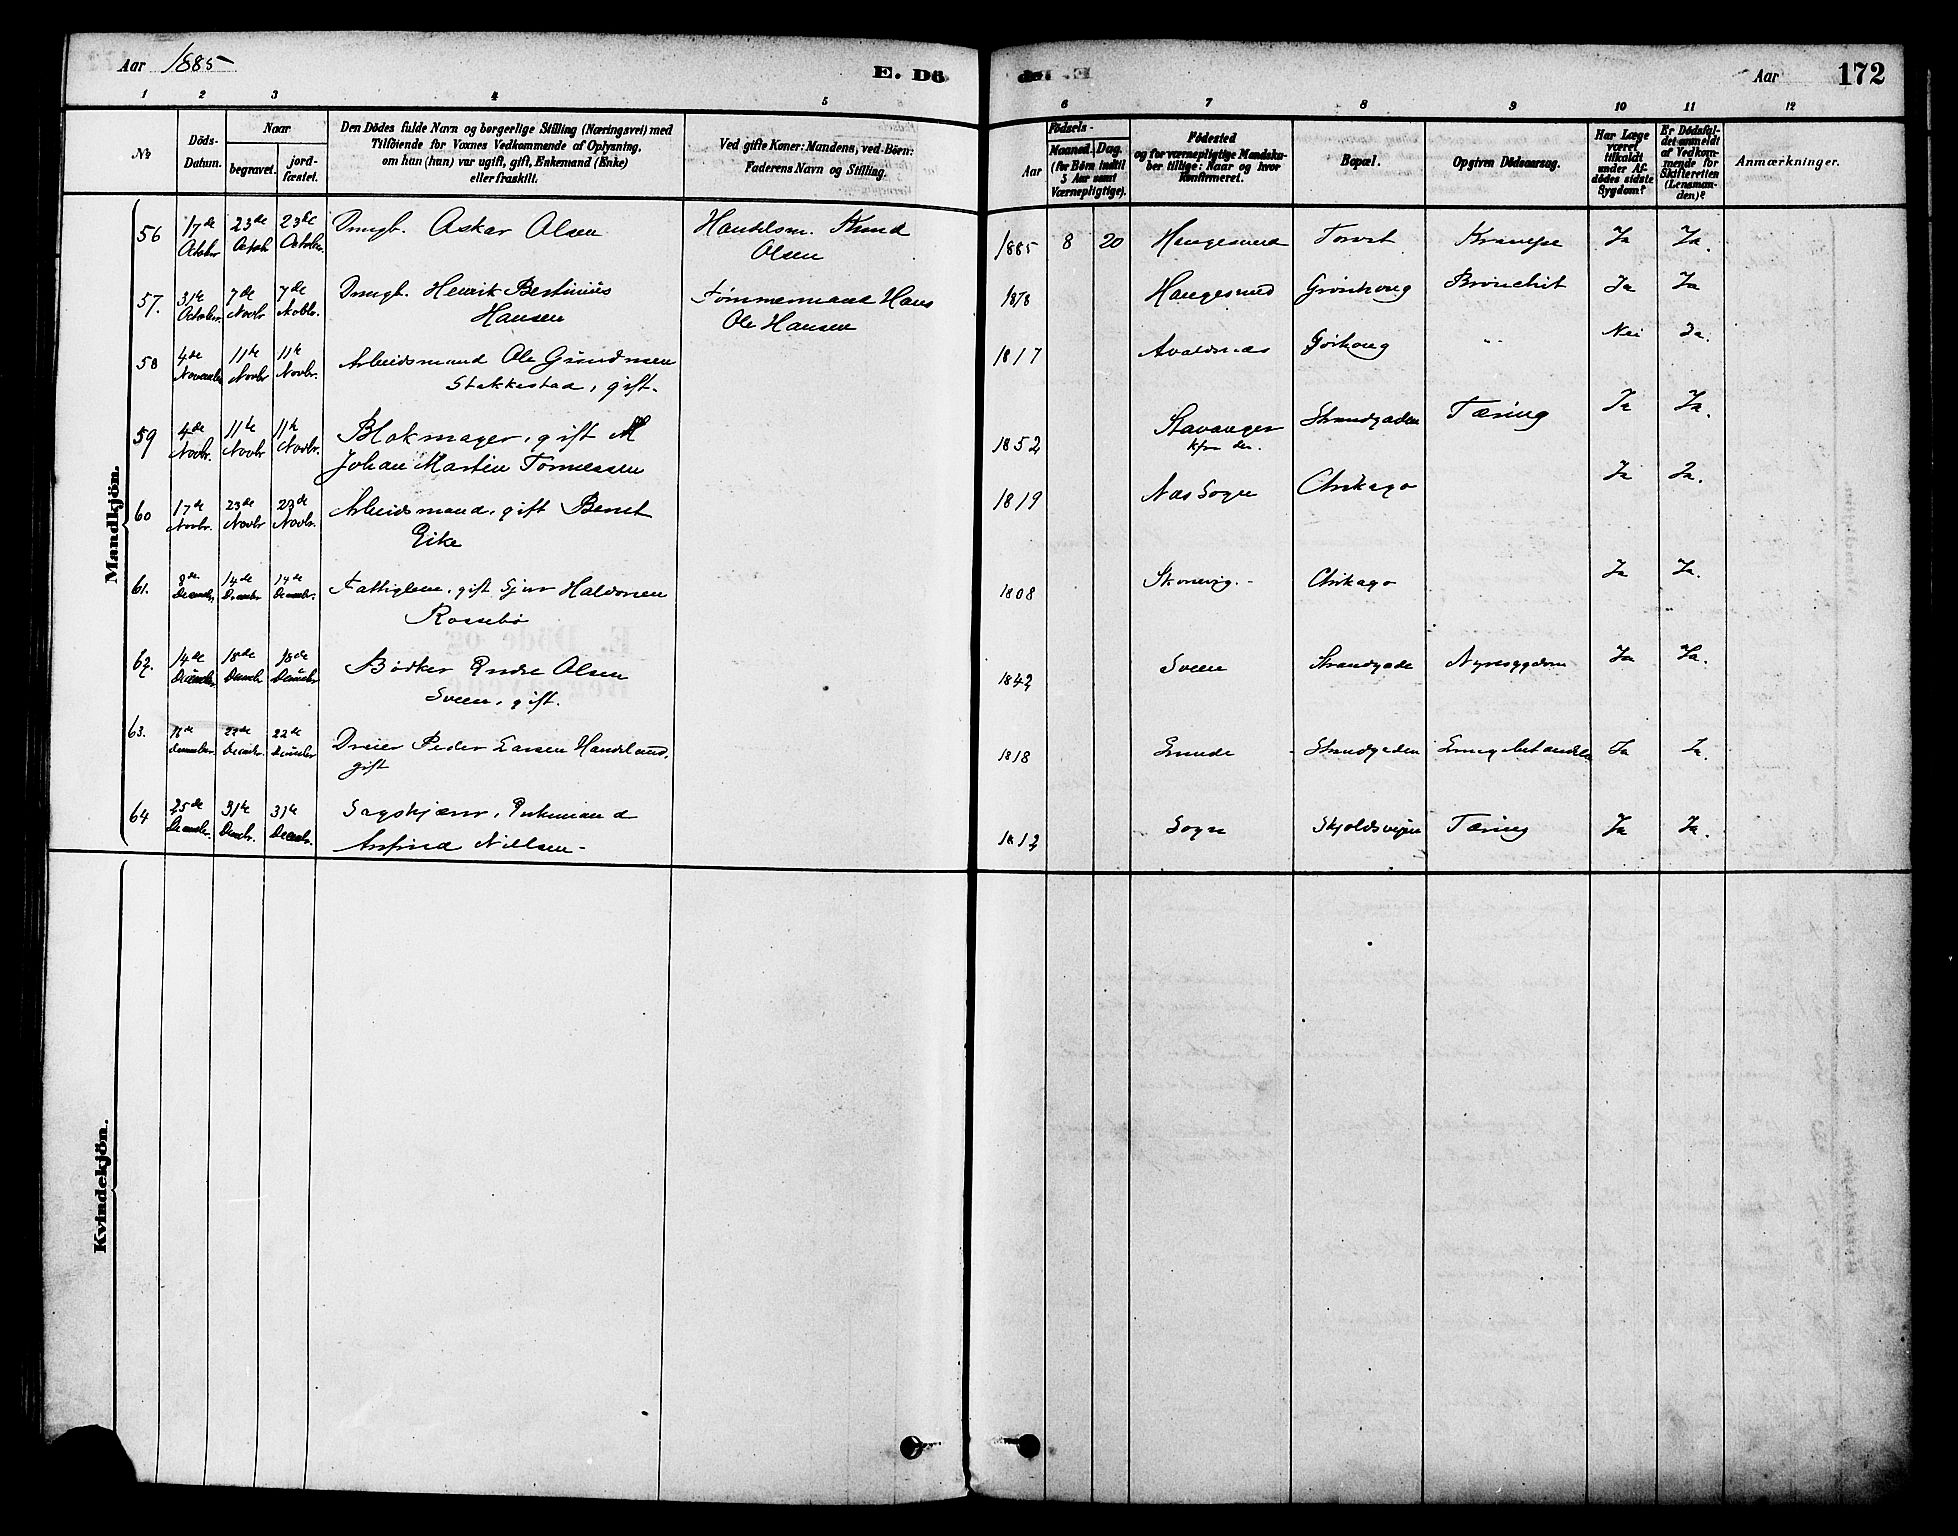 Aar 1885
E. Dö
Aar
172
1 2 3 4 5 6 7 8 9 10 11 12
№
Döds-
Datum.
Naar
begravet.
jord-
fæstet.
Den Dödes fulde Navn og borgerlige Stilling (Næringsvei) med
Tilföiende for Voxnes Vedkommende af Oplysning,
om hun (han) var ugift, gift, Enkemand (Enke)
eller fraskilt.
Ved gifte Koner: Mandens, ved Börn:
Faderens Navn og Stilling.
Födsels-
Aar
Maaned. Dag.
(for Börn indtil
5 Aar samt
Værnepligtige).
Födested
og for værnepligtige Mandska-
ber tillige: Naar og hvor
Konfirmeret.
Bopæl.
Opgiven Dödsaarsag.
Har Læge
været
tilkaldt
under Af-
dödes sidste
Sygdom?
Er Dödsfal-
det anmeldt
af Vedkom-
mende for
Skifteretten
(Lensman-
den)?
Anmærkninger.
Mandkjön.
56 17de 23de 23de Drengb. Askar Olsen Handelsm. Knud 1885 8 20 Haugesund Torvet Krampe Ja Ja.
Octobr Octobr Octobr. Olsen
57. 31te 7de 7de Drengb. Henrik Bertinius Tømmermand Hans 1878 Haugesund Grønhoug Bronchit Ja Ja
Octobr. Novbr Novbr. Hansen Ole Hansen
58 4de 11te 11te Arbeidsmand Ole Gundersen 1817 Avaldsnæs Gørhoug " Nei Ja.
November Novbr Novbr. Stakkestad, gift.
59 4de 11te 11te Blokmager, gift 1852 Stavanger Strandgaden Tæring Ja Ja.
Novbr. Novbr Novbr. Johan Martin Tørnessen
60 17de 23de 23de Arbeidsmand, gift Bernt 1819 Næs Sogn Chikago Ja Ja.
Novbr. Novbr Novbr. Eike
61. 8de 14de 14de Fattiglem, gift Sjur Halvorsen 1808 Skonevig. Chikago Ja Ja.
Decembr Decembr Decembr. Rossebø
62. 14de 18de 18de Bødker Endre Olsen 1842 Sveen Strandgade Nyresygdom Ja Ja.
Decembr. Decembr Decembr Sveen, gift.
63. 22de 22de Dreier Peder Larsen Handeland, 1818 Strandgaden Ja Ja.
December. Decembr. Decembr gift
64 25de 31te 31te Sagskjærer, Enkemand 1812 Sogn Skjoldsvigen Tæring Ja Ja.
Decembr. Decembr. Decembr. Arnfind Nielsen
Kvindekjön.